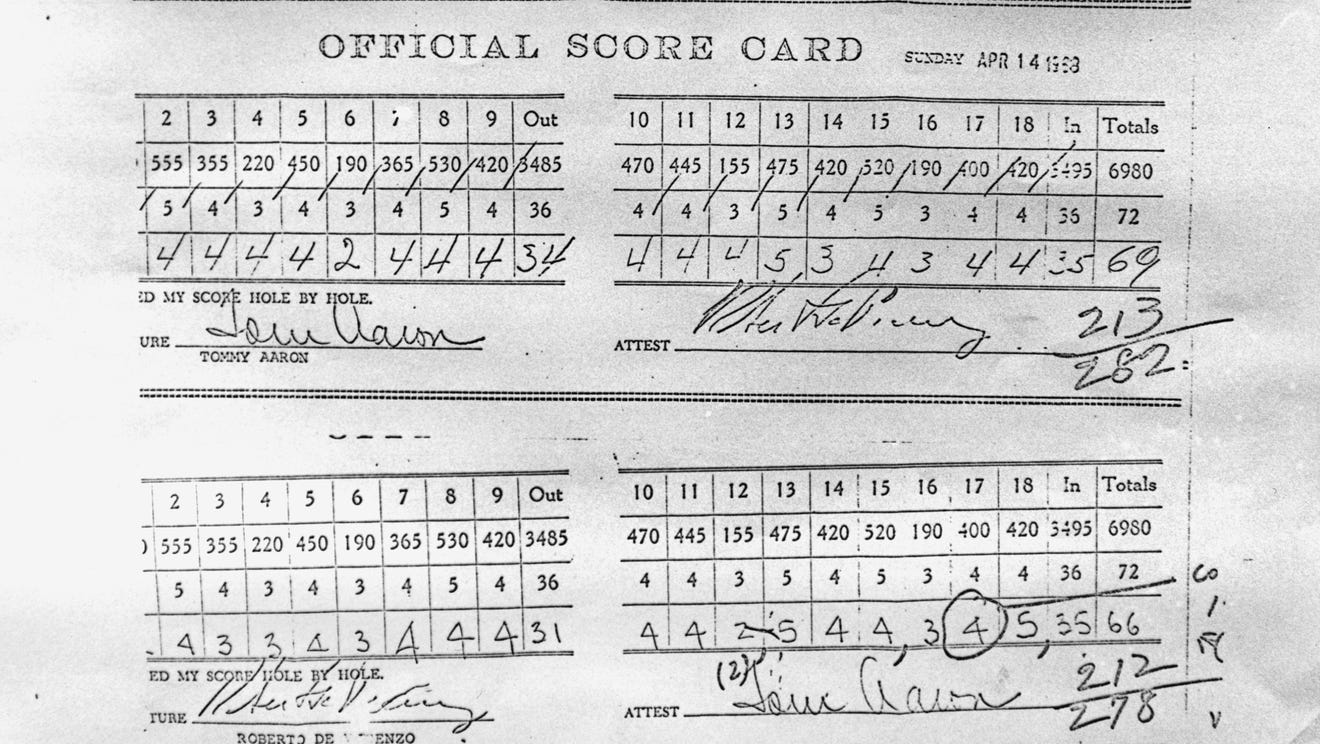 OFFICIAL SCORE CARD SUNDAY APR 14 1968
2 3 4 5 6 7 8 9 Out 10 11 12 13 14 15 16 17 18 In Totals
555 355 220 450 190 365 530 420 3485 470 445 155 475 420 520 190 400 420 3495 6980
5 4 3 4 3 4 5 4 36 4 4 3 5 4 5 3 4 4 36 72
4 4 4 4 2 4 4 4 34 4 4 4 5 3 4 3 4 4 35 69
ED MY SCORE HOLE BY HOLE.
213
URE Tom Aaron ATTEST
TOMMY AARON
282
2 3 4 5 6 7 8 9 Out 10 11 12 13 14 15 16 17 18 In Totals
555 355 220 450 190 365 530 420 3485 470 445 155 475 420 520 190 400 420 3495 6980
5 4 3 4 3 4 5 4 36 4 4 3 5 4 5 3 4 4 36 72
4 3 3 4 3 4 4 4 31 4 4 2 5 4 4 3 4 5 35 66
ED MY SCORE HOLE BY HOLE.
(2) 212
TURE ATTEST Tom Aaron
278
ROBERTO DE ENZO